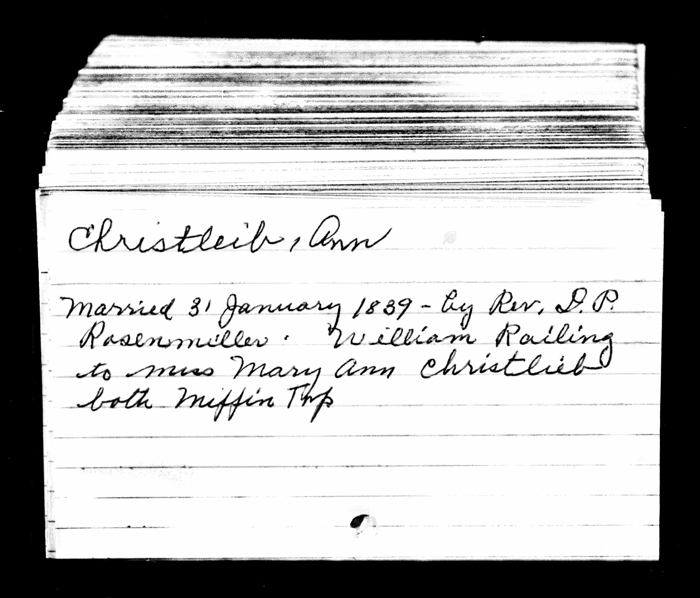 Christleib, Ann
Married 31 January 1839 - by Rev. D. P.
Rosenmiller. William Railing
to miss Mary Ann Christlieb
both Miffin Twp